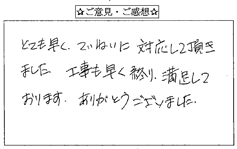 ☆ご意見・ご感想☆
とても早く、ていねいに対応して頂き
ました 工事も早く終り、満足して
おります。ありがとうございました。